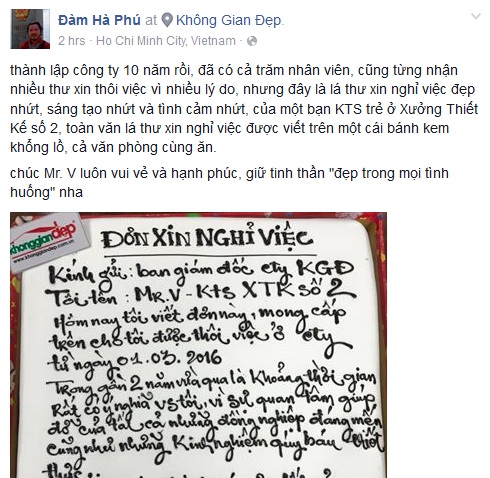 Đàm Hà Phú at Không Gian Đẹp.
2 hrs · Ho Chi Minh City, Vietnam ·
thành lập công ty 10 năm rồi, đã có cả trăm nhân viên, cũng từng nhận
nhiều thư xin thôi việc vì nhiều lý do, nhưng đây là lá thư xin nghỉ việc đẹp
nhứt, sáng tạo nhứt và tình cảm nhứt, của một bạn KTS trẻ ở Xưởng Thiết
Kế số 2, toàn văn lá thư xin nghỉ việc được viết trên một cái bánh kem
khổng lồ, cả văn phòng cùng ăn.
chúc Mr. V luôn vui vẻ và hạnh phúc, giữ tinh thần "đẹp trong mọi tình
huống" nha
khônggianđẹp
www.khonggiandep.com.vn
ĐƠN XIN NGHỈ VIỆC
Kính gửi: ban giám đốc cty KGĐ
Tôi tên: MR.V - KTS XTK số 2
Hôm nay tôi viết đơn này, mong cấp
trên cho tôi được thôi việc ở cty
từ ngày 01.03.2016
Trong gần 2 năm vừa qua là khoảng thời gian
Rất có ý nghĩa vs tôi, vì sự quan tâm giúp
đỡ của tất cả những đồng nghiệp đáng mến
cũng như những kinh nghiệm quý báu